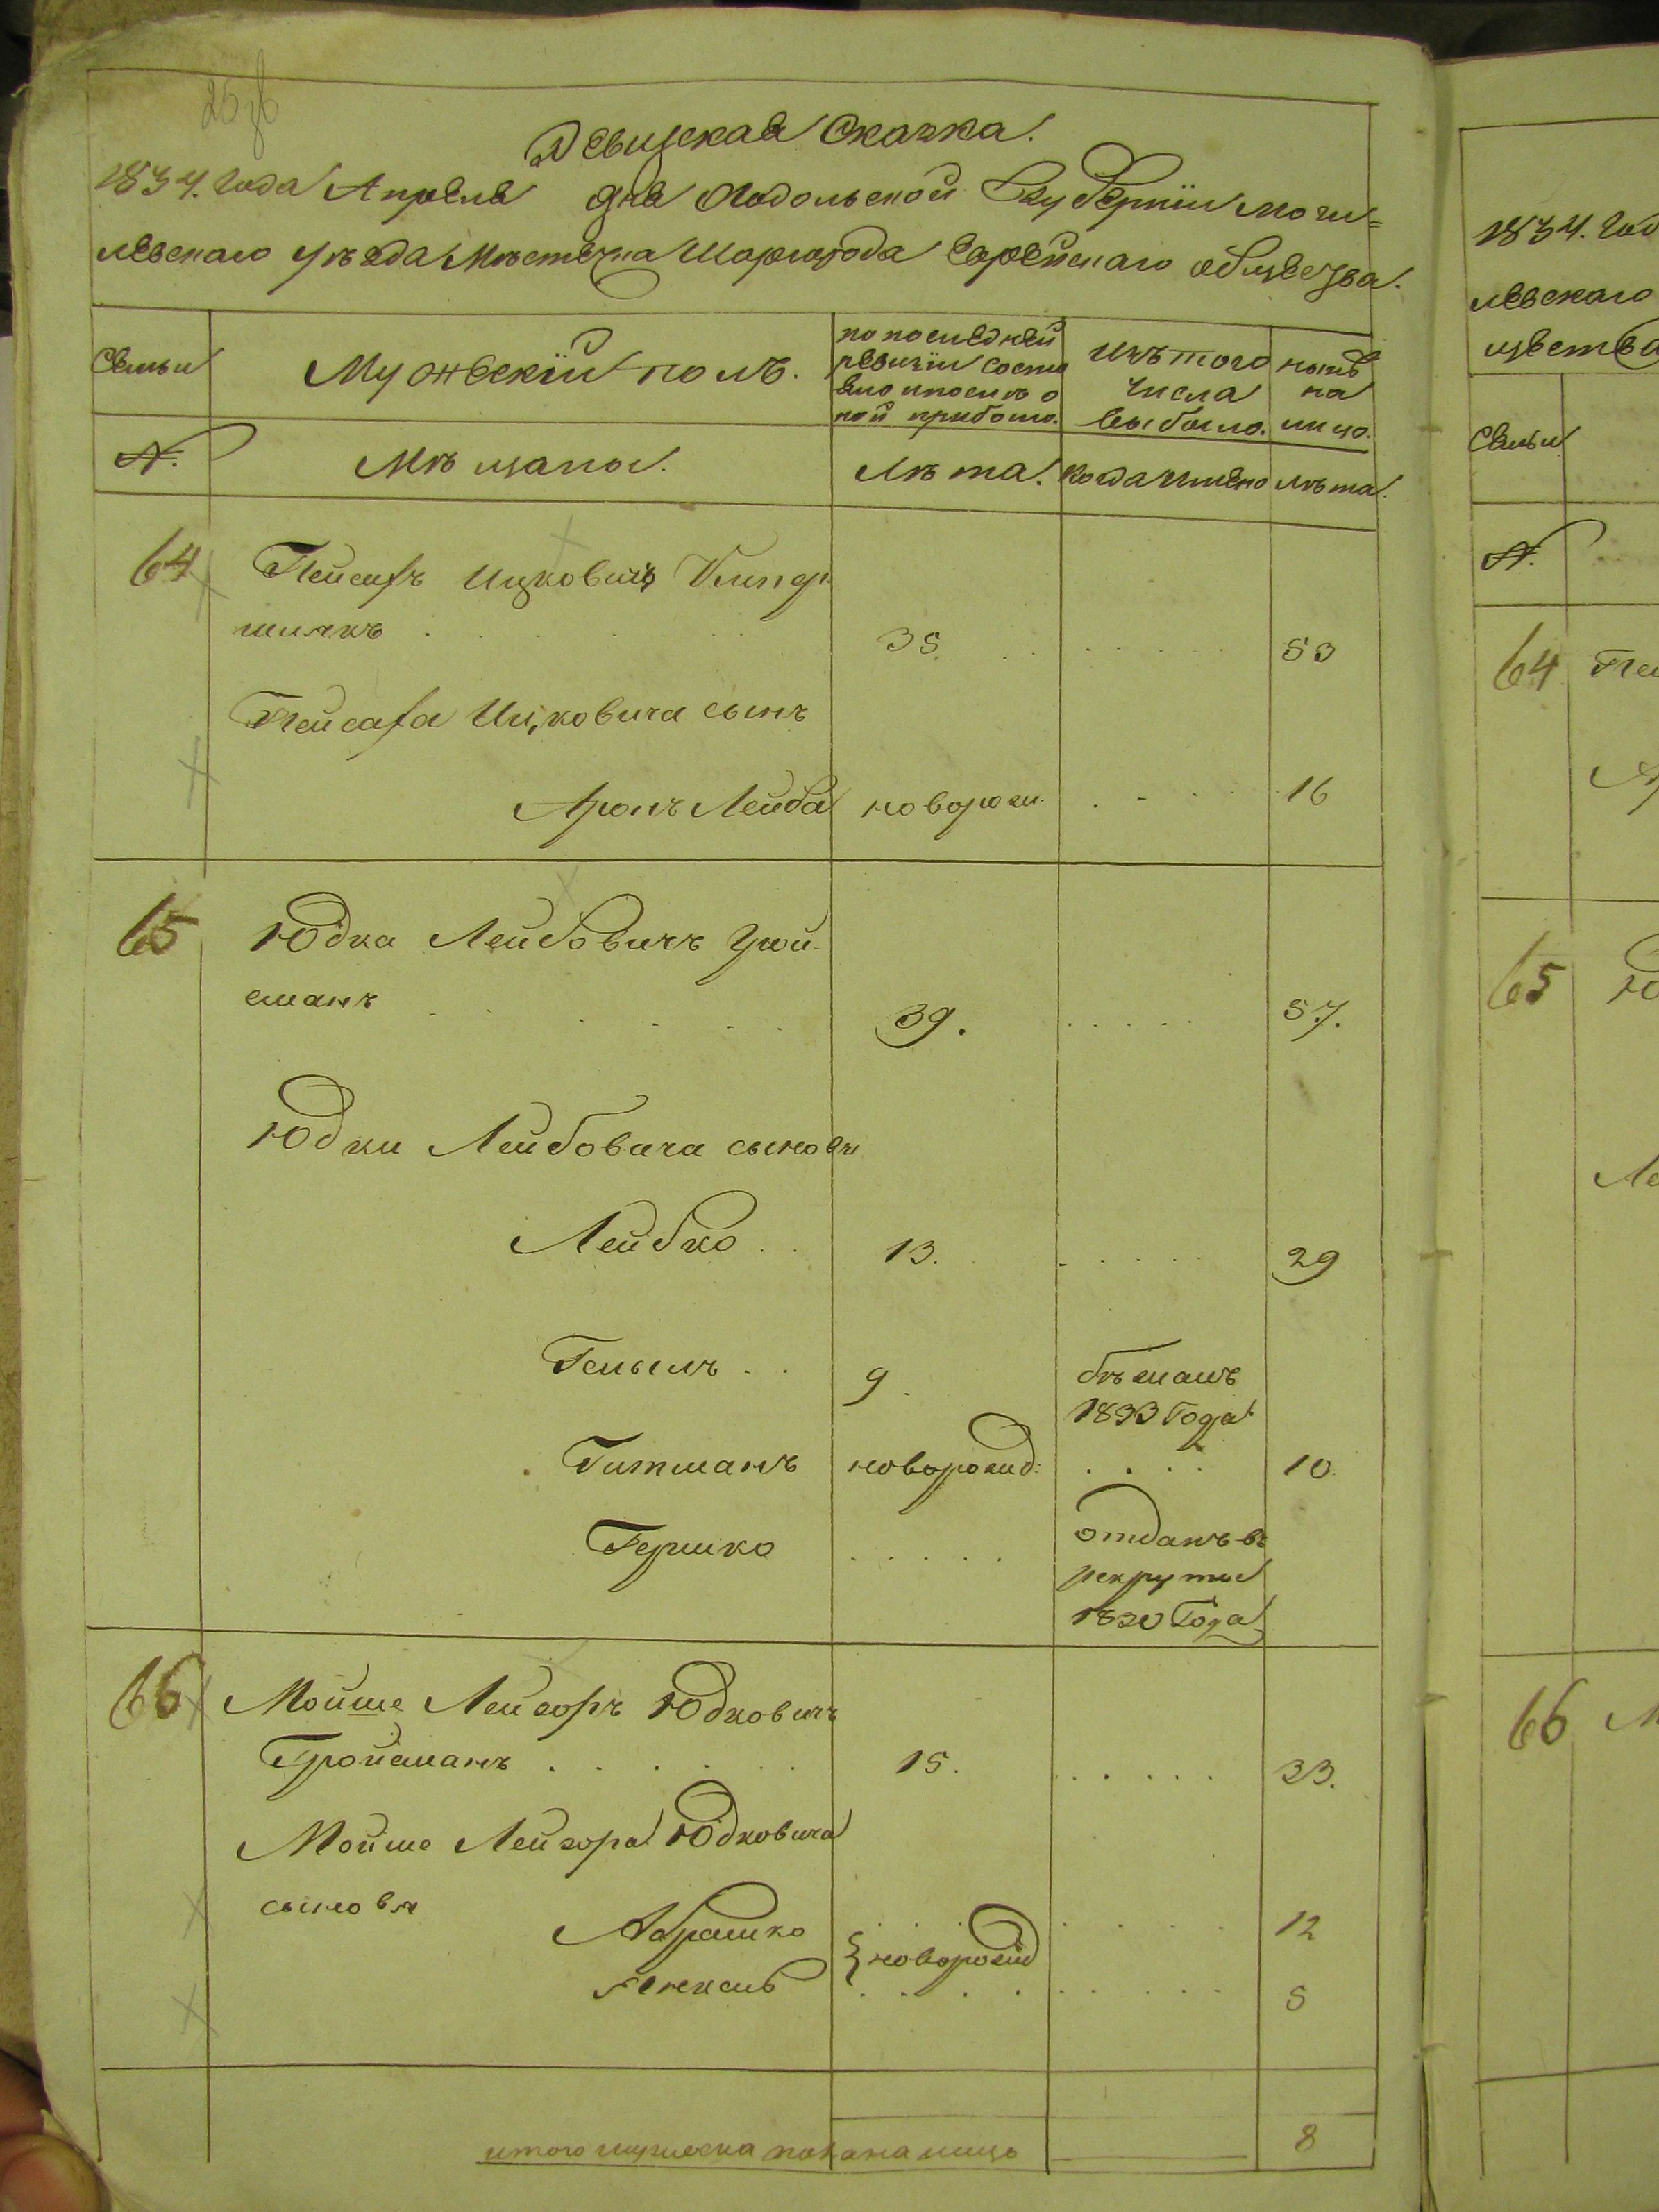 Ревизская Сказка.
1834. года Апреля дня Подольской Губернiи Моги=
левскаго уѣзда Мѣстечка Шаргорода Еврейскаго общества.
Семьи
Мужескiй полъ.
по последней
ревизiи состо
яло и после о
ной прибыло.
Изъ того
числа
выбыло.
ныне
на
лицо.
№.
Мѣщаны.
Лѣта.
Когда имено
Лѣта.
64
Пейсахъ Ицковичъ
35
53
Пейсаха Ицковича сынъ
Аронъ Лейба
новорож.
16
65
Юдка Лейбовичъ Грой
сманъ
39.
57.
Юдки Лейбовича сыновя
Лейбко
13.
29
9.
бѣжалъ
1833 Года
Гитманъ
новорожд:
10.
Гершко
отданъ въ
рекруты
1830 Года
66
Мойше Лейзоръ Юдковичъ
Гройсманъ
15.
33.
Мойше Лейзора Юдковича
сыновя
Абрашко
12
новорожд
Янкель
5
итого мужеска пола на лицо
8
1834. Год
левскаго
щества
Семьи
№.
64
Пей
65
Ю
Ле
66
М